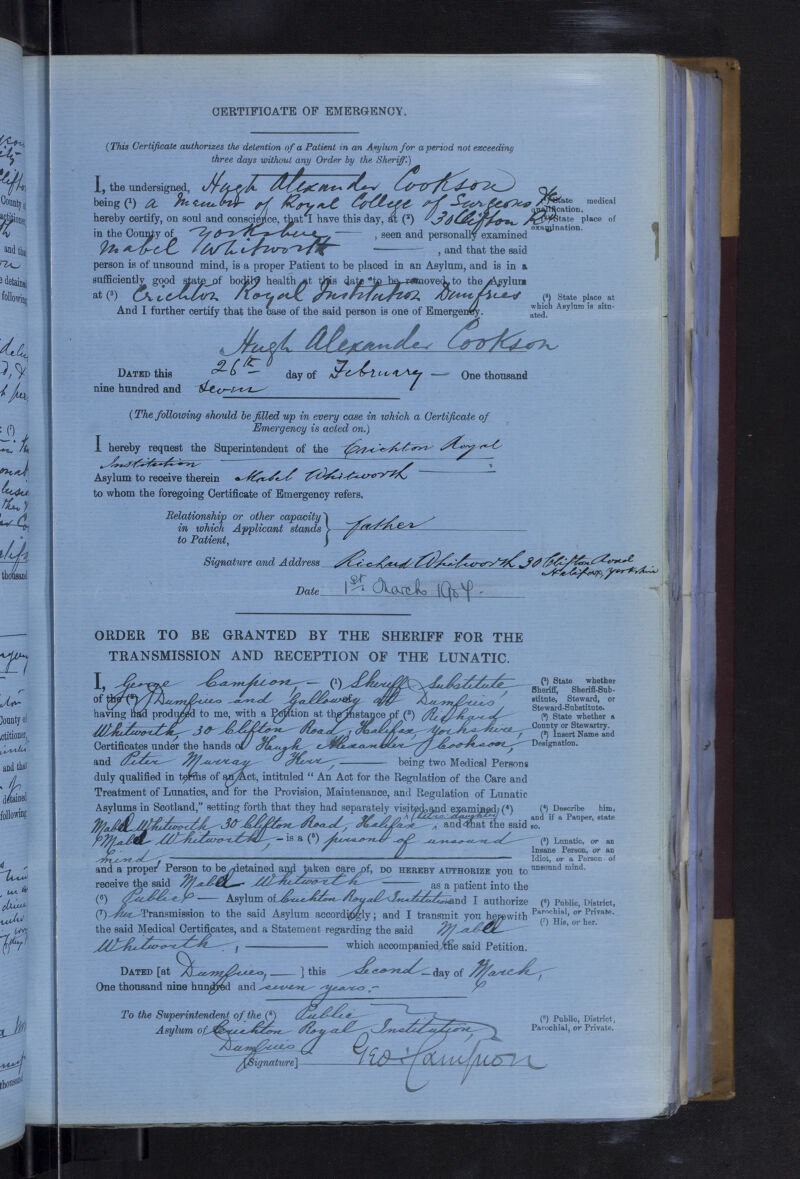 CERTIFICATE OF EMERGENCY.
(This Certificate authorizes the detention of a Patient in an Asylum for a period not exceeding
three days without any Order by the Sheriff.)
I, the undersigned, Hugh Alexander Cookson
being (¹) a Member of Royal College of Surgeons
(¹) State medical
qualification.
hereby certify, on soul and conscience, that I have this day, at (²) 30 Clifton Rd
(²) State place of
examination.
in the County of Yorkshire — , seen and personally examined
Mabel Whitworth , and that the said
person is of unsound mind, is a proper Patient to be placed in an Asylum, and is in a
sufficiently good state of bodily health at this date to be removed to the Asylum
at (³) Crichton Royal Institution Dumfries
(³) State place at
which Asylum is situ-
ated.
And I further certify that the case of the said person is one of Emergency.
Hugh Alexander Cookson
DATED this 26th day of February — One thousand
nine hundred and seven
(The following should be filled up in every case in which a Certificate of
Emergency is acted on.)
I hereby request the Superintendent of the Crichton Royal
Institution
Asylum to receive therein Mabel Whitworth
to whom the foregoing Certificate of Emergency refers.
Relationship or other capacity
in which Applicant stands
to Patient,
father
Signature and Address Richard Whitworth 30 Clifton Road
Halifax, Yorkshire
Date 1st March 1907.
ORDER TO BE GRANTED BY THE SHERIFF FOR THE
TRANSMISSION AND RECEPTION OF THE LUNATIC.
I, George Campion — (¹) Sheriff Substitute
(¹) State whether
Sheriff, Sheriff-Sub-
stitute, Steward, or
Steward-Substitute.
of the (²) Dumfries and Galloway at Dumfries,
(²) State whether a
County or Stewartry.
having had produced to me, with a Petition at the instance of (³) Richard
(³) Insert Name and
Designation.
Whitworth, 30 Clifton Road, Halifax, Yorkshire,
Certificates under the hands of Haugh Alexander Cookson,
and Peter Murray Kerr, — being two Medical Persons
duly qualified in terms of an Act, intituled “ An Act for the Regulation of the Care and
Treatment of Lunatics, and for the Provision, Maintenance, and Regulation of Lunatic
Asylums in Scotland,” setting forth that they had separately visited and examined (⁴)
(⁴) Describe him,
and if a Pauper, state
so.
daughter
Mabel Whitworth 30 Clifton Road, Halifax, and that the said
Mabel Whitworth, — is a (⁵) person of unsound
(⁵) Lunatic, or an
Insane Person, or an
Idiot, or a Person of
unsound mind.
mind,
and a proper Person to be detained and taken care of, DO HEREBY AUTHORIZE you to
receive the said Mabel Whitworth — as a patient into the
(⁶) Public — Asylum of Crichton Royal Institution and I authorize
(⁶) Public, District,
Parochial, or Private.
(⁷) her Transmission to the said Asylum accordingly; and I transmit you herewith
(⁷) His, or her.
the said Medical Certificates, and a Statement regarding the said Mabel
Whitworth, — which accompanied the said Petition.
DATED [at Dumfries, — ] this Second — day of March,
One thousand nine hundred and seven years.—
To the Superintendent of the (⁸) Public
(⁸) Public, District,
Parochial, or Private.
Asylum of Crichton Royal Institution,
Dumfries
[Signature] Geo Campion